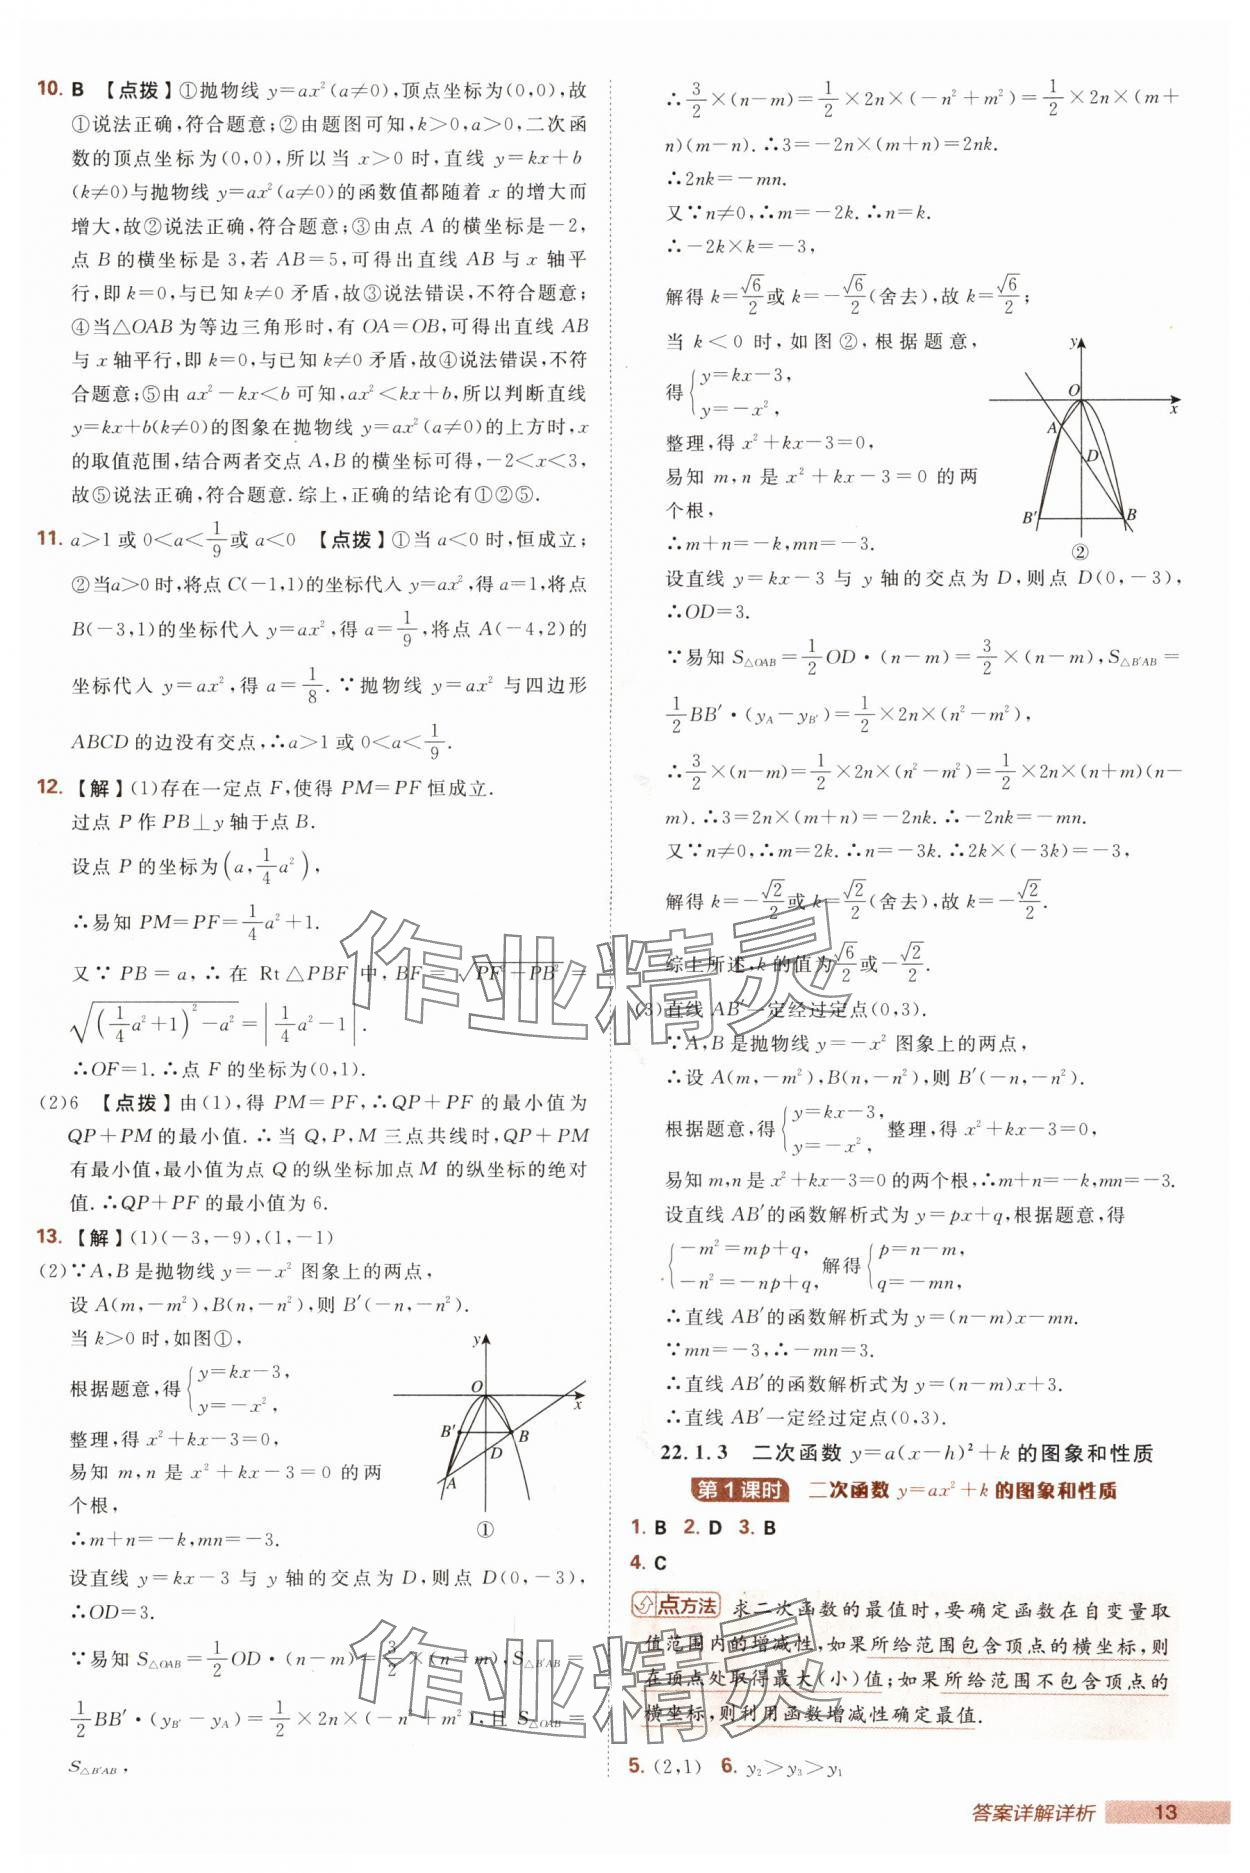 10. B 【点拨】①抛物线 y=ax²(a≠0),顶点坐标为(0,0),故
①说法正确,符合题意;②由题图可知,k>0,a>0,二次函
数的顶点坐标为(0,0),所以当 x>0 时,直线 y=kx+b
(k≠0)与抛物线 y=ax²(a≠0)的函数值都随着 x 的增大而
增大,故②说法正确,符合题意;③由点 A 的横坐标是-2,
点 B 的横坐标是 3,若 AB=5,可得出直线 AB 与 x 轴平
行,即 k=0,与已知 k≠0 矛盾,故③说法错误,不符合题意;
④当△OAB 为等边三角形时,有 OA=OB,可得出直线 AB
与 x 轴平行,即 k=0,与已知 k≠0 矛盾,故④说法错误,不符
合题意;⑤由 ax²-kx<b 可知,ax²<kx+b,所以判断直线
y=kx+b(k≠0)的图象在抛物线 y=ax²(a≠0)的上方时,x
的取值范围,结合两者交点 A,B 的横坐标可得,-2<x<3,
故⑤说法正确,符合题意.综上,正确的结论有①②⑤.
11. a>1 或 0<a<1/9 或 a<0 【点拨】①当 a<0 时,恒成立;
②当a>0 时,将点 C(-1,1)的坐标代入 y=ax²,得 a=1,将点
B(-3,1)的坐标代入 y=ax²,得 a=1/9,将点 A(-4,2)的
坐标代入 y=ax²,得 a=1/8.∵抛物线 y=ax² 与四边形
ABCD 的边没有交点,∴a>1 或 0<a<1/9.
12. 【解】(1)存在一定点 F,使得 PM=PF 恒成立.
过点 P 作 PB⊥y 轴于点 B.
设点 P 的坐标为(a,1/4a²),
∴易知 PM=PF=1/4a²+1.
又∵PB=a,∴在 Rt△PBF 中,BF=√(PF²-PB²)=
√((1/4a²+1)²-a²)=|1/4a²-1|.
∴OF=1.∴点 F 的坐标为(0,1).
(2)6 【点拨】由(1),得 PM=PF,∴QP+PF 的最小值为
QP+PM 的最小值.∴当 Q,P,M 三点共线时,QP+PM
有最小值,最小值为点 Q 的纵坐标加点 M 的纵坐标的绝对
值.∴QP+PF 的最小值为 6.
13. 【解】(1)(-3,-9),(1,-1)
(2)∵A,B 是抛物线 y=-x² 图象上的两点,
设 A(m,-m²),B(n,-n²),则 B′(-n,-n²).
当 k>0 时,如图①,
根据题意,得{y=kx-3,
y=-x²,
整理,得 x²+kx-3=0,
易知 m,n 是 x²+kx-3=0 的两
个根,
∴m+n=-k,mn=-3.
y
O
x
B′
B
D
A
①
设直线 y=kx-3 与 y 轴的交点为 D,则点 D(0,-3),
∴OD=3.
∵易知 S△OAB=1/2OD·(n-m)=3/2×(n-m),S△B′AB=
1/2BB′·(yB′-yA)=1/2×2n×(-n²+m²),且 S△OAB=
S△B′AB,
∴3/2×(n-m)=1/2×2n×(-n²+m²)=1/2×2n×(m+
n)(m-n).∴3=-2n×(m+n)=2nk.
∴2nk=-mn.
又∵n≠0,∴m=-2k.∴n=k.
∴-2k×k=-3,
解得 k=√6/2或 k=-√6/2(舍去),故 k=√6/2;
当 k<0 时,如图②,根据题意,
得{y=kx-3,
y=-x²,
整理,得 x²+kx-3=0,
易知 m,n 是 x²+kx-3=0 的两
个根,
∴m+n=-k,mn=-3.
y
O
x
A
D
B′
B
②
设直线 y=kx-3 与 y 轴的交点为 D,则点 D(0,-3),
∴OD=3.
∵易知 S△OAB=1/2OD·(n-m)=3/2×(n-m),S△B′AB=
1/2BB′·(yA-yB′)=1/2×2n×(n²-m²),
∴3/2×(n-m)=1/2×2n×(n²-m²)=1/2×2n×(n+m)(n-
m).∴3=2n×(m+n)=-2nk.∴-2nk=-mn.
又∵n≠0,∴m=2k.∴n=-3k.∴2k×(-3k)=-3,
解得 k=-√2/2或 k=√2/2(舍去),故 k=-√2/2.
综上所述,k 的值为√6/2或-√2/2.
(3)直线 AB′一定经过定点(0,3).
∵A,B 是抛物线 y=-x² 图象上的两点,
∴设 A(m,-m²),B(n,-n²),则 B′(-n,-n²).
根据题意,得{y=kx-3,
y=-x², 整理,得 x²+kx-3=0,
易知 m,n 是 x²+kx-3=0 的两个根,∴m+n=-k,mn=-3.
设直线 AB′的函数解析式为 y=px+q,根据题意,得
{-m²=mp+q,
-n²=-np+q, 解得{p=n-m,
q=-mn,
∴直线 AB′的函数解析式为 y=(n-m)x-mn.
∵mn=-3,∴-mn=3.
∴直线 AB′的函数解析式为 y=(n-m)x+3.
∴直线 AB′一定经过定点(0,3).
22.1.3 二次函数 y=a(x-h)²+k 的图象和性质
第1课时 二次函数 y=ax²+k 的图象和性质
1. B 2. D 3. B
4. C
点方法 求二次函数的最值时,要确定函数在自变量取
值范围内的增减性,如果所给范围包含顶点的横坐标,则
在顶点处取得最大(小)值;如果所给范围不包含顶点的
横坐标,则利用函数增减性确定最值.
5. (2,1) 6. y₂>y₃>y₁
答案详解详析 13
作业精灵
作业精灵